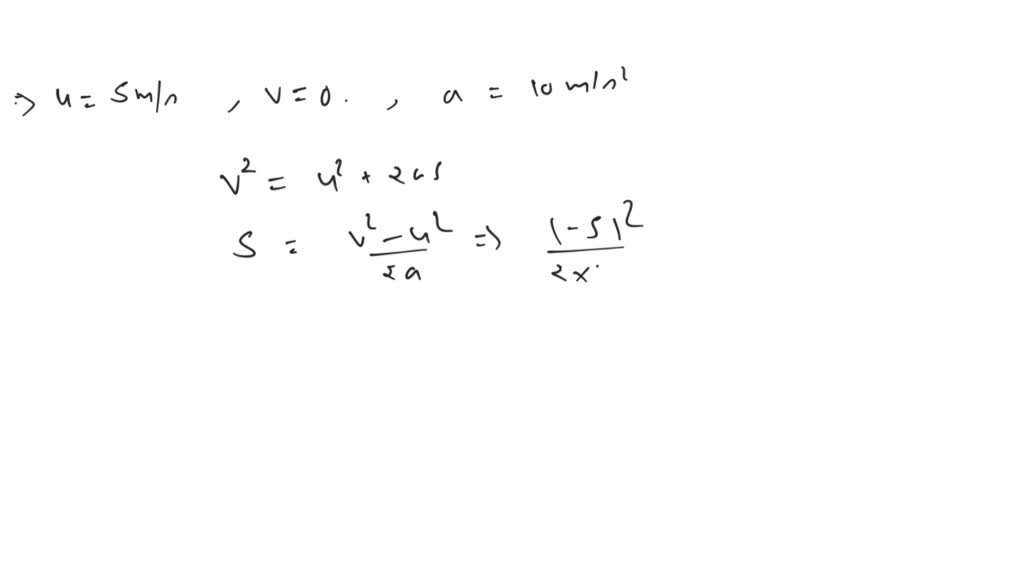 ⇒ u = 5 m/s , v = 0 . , a = 10 m/s²
v² = u² + 2as
S = (v² - u²)/2a ⇒ (-5)²/2x